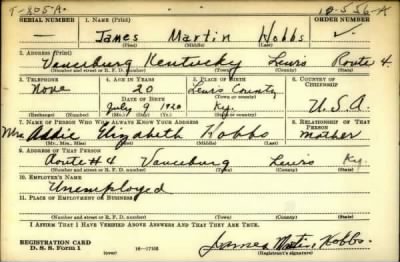 T-805A. 10556-A
SERIAL NUMBER 1. NAME (Print) ORDER NUMBER
James Martin Hobbs
(First) (Middle) (Last)
2. ADDRESS (Print)
Vanceburg Kentucky Lewis Route 4.
(Number and street or R. F. D. number) (Town) (County) (State)
3. TELEPHONE 4. AGE IN YEARS 5. PLACE OF BIRTH 6. COUNTRY OF CITIZENSHIP
None 20 Lewis County
DATE OF BIRTH (Town or county)
July 9 1920 Ky. U.S.A.
(Exchange) (Number) (Mo.) (Day) (Yr.) (State or country)
7. NAME OF PERSON WHO WILL ALWAYS KNOW YOUR ADDRESS 8. RELATIONSHIP OF THAT PERSON
Mrs. Addie Elizabeth Hobbs Mother
(Mr., Mrs., Miss) (First) (Middle) (Last)
9. ADDRESS OF THAT PERSON
Route #4 Vanceburg Lewis Ky.
(Number and street or R. F. D. number) (Town) (County) (State)
10. EMPLOYER'S NAME
Unemployed
11. PLACE OF EMPLOYMENT OR BUSINESS
(Number and street or R. F. D. number) (Town) (County) (State)
I AFFIRM THAT I HAVE VERIFIED ABOVE ANSWERS AND THAT THEY ARE TRUE.
REGISTRATION CARD James Martin Hobbs.
D. S. S. Form 1 (over) 16—17105 (Registrant's signature)